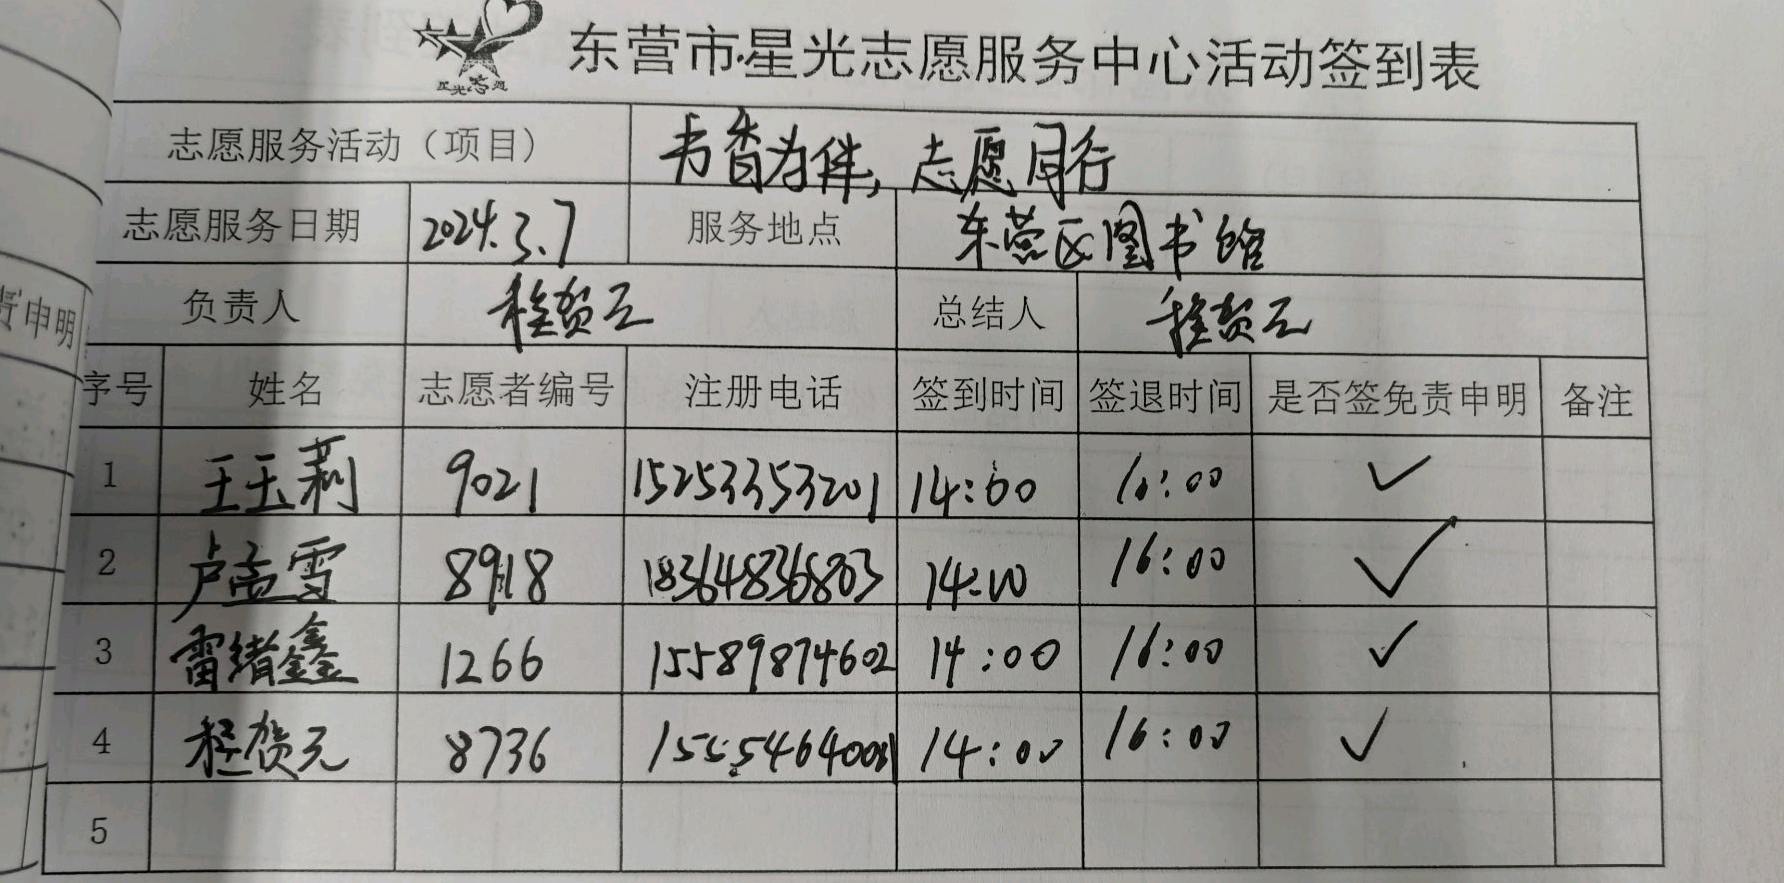 星光志愿
东营市星光志愿服务中心活动签到表
志愿服务活动（项目） 书香为伴，志愿同行
志愿服务日期 2024.3.7 服务地点 东营区图书馆
负责人 程贺元 总结人 程贺元
责申明
序号 姓名 志愿者编号 注册电话 签到时间 签退时间 是否签免责申明 备注
1 王玉莉 9021 15253353201 14:00 16:00 ✓
2 卢孟雪 8918 18364836803 14:00 16:00 ✓
3 雷绪鑫 1266 15589874602 14:00 16:00 ✓
4 程贺元 8736 14:00 16:00 ✓
5